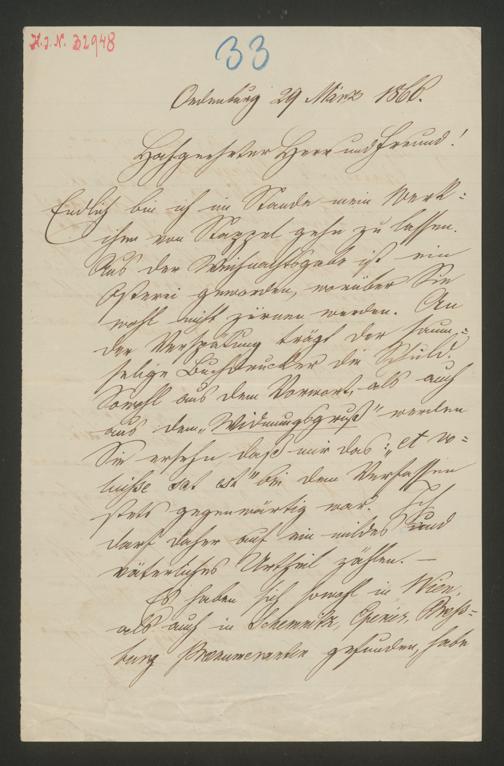 H. J. N. 32948
33
Oedenburg 29 März 1866.
Hochgeehrter Herr und Freund!
Endlich bin ich im Stande mein Werk=
chen vom Stappel gehn zu lassen.
Aus der Weihnachtsgabe ist ein
Osterei geworden, worüber Sie
wohl nicht zürnen werden. An
der Verspätung trägt der saum=
selige Buchdrucker die Schuld.
Sowohl aus dem Vorwort, als auch
aus dem „Widmungsgruß" werden
Sie ersehn daß mir das: „et vo=
luisse sat est" bei dem Verfassen
stets gegenwärtig war. Ich
darf daher auf ein mildes und
väterliches Urtheil zählen. —
Es haben sich sowohl in Wien,
als auch in Schemnitz, Eperies, Preß=
burg Praenumeranten gefunden, habe